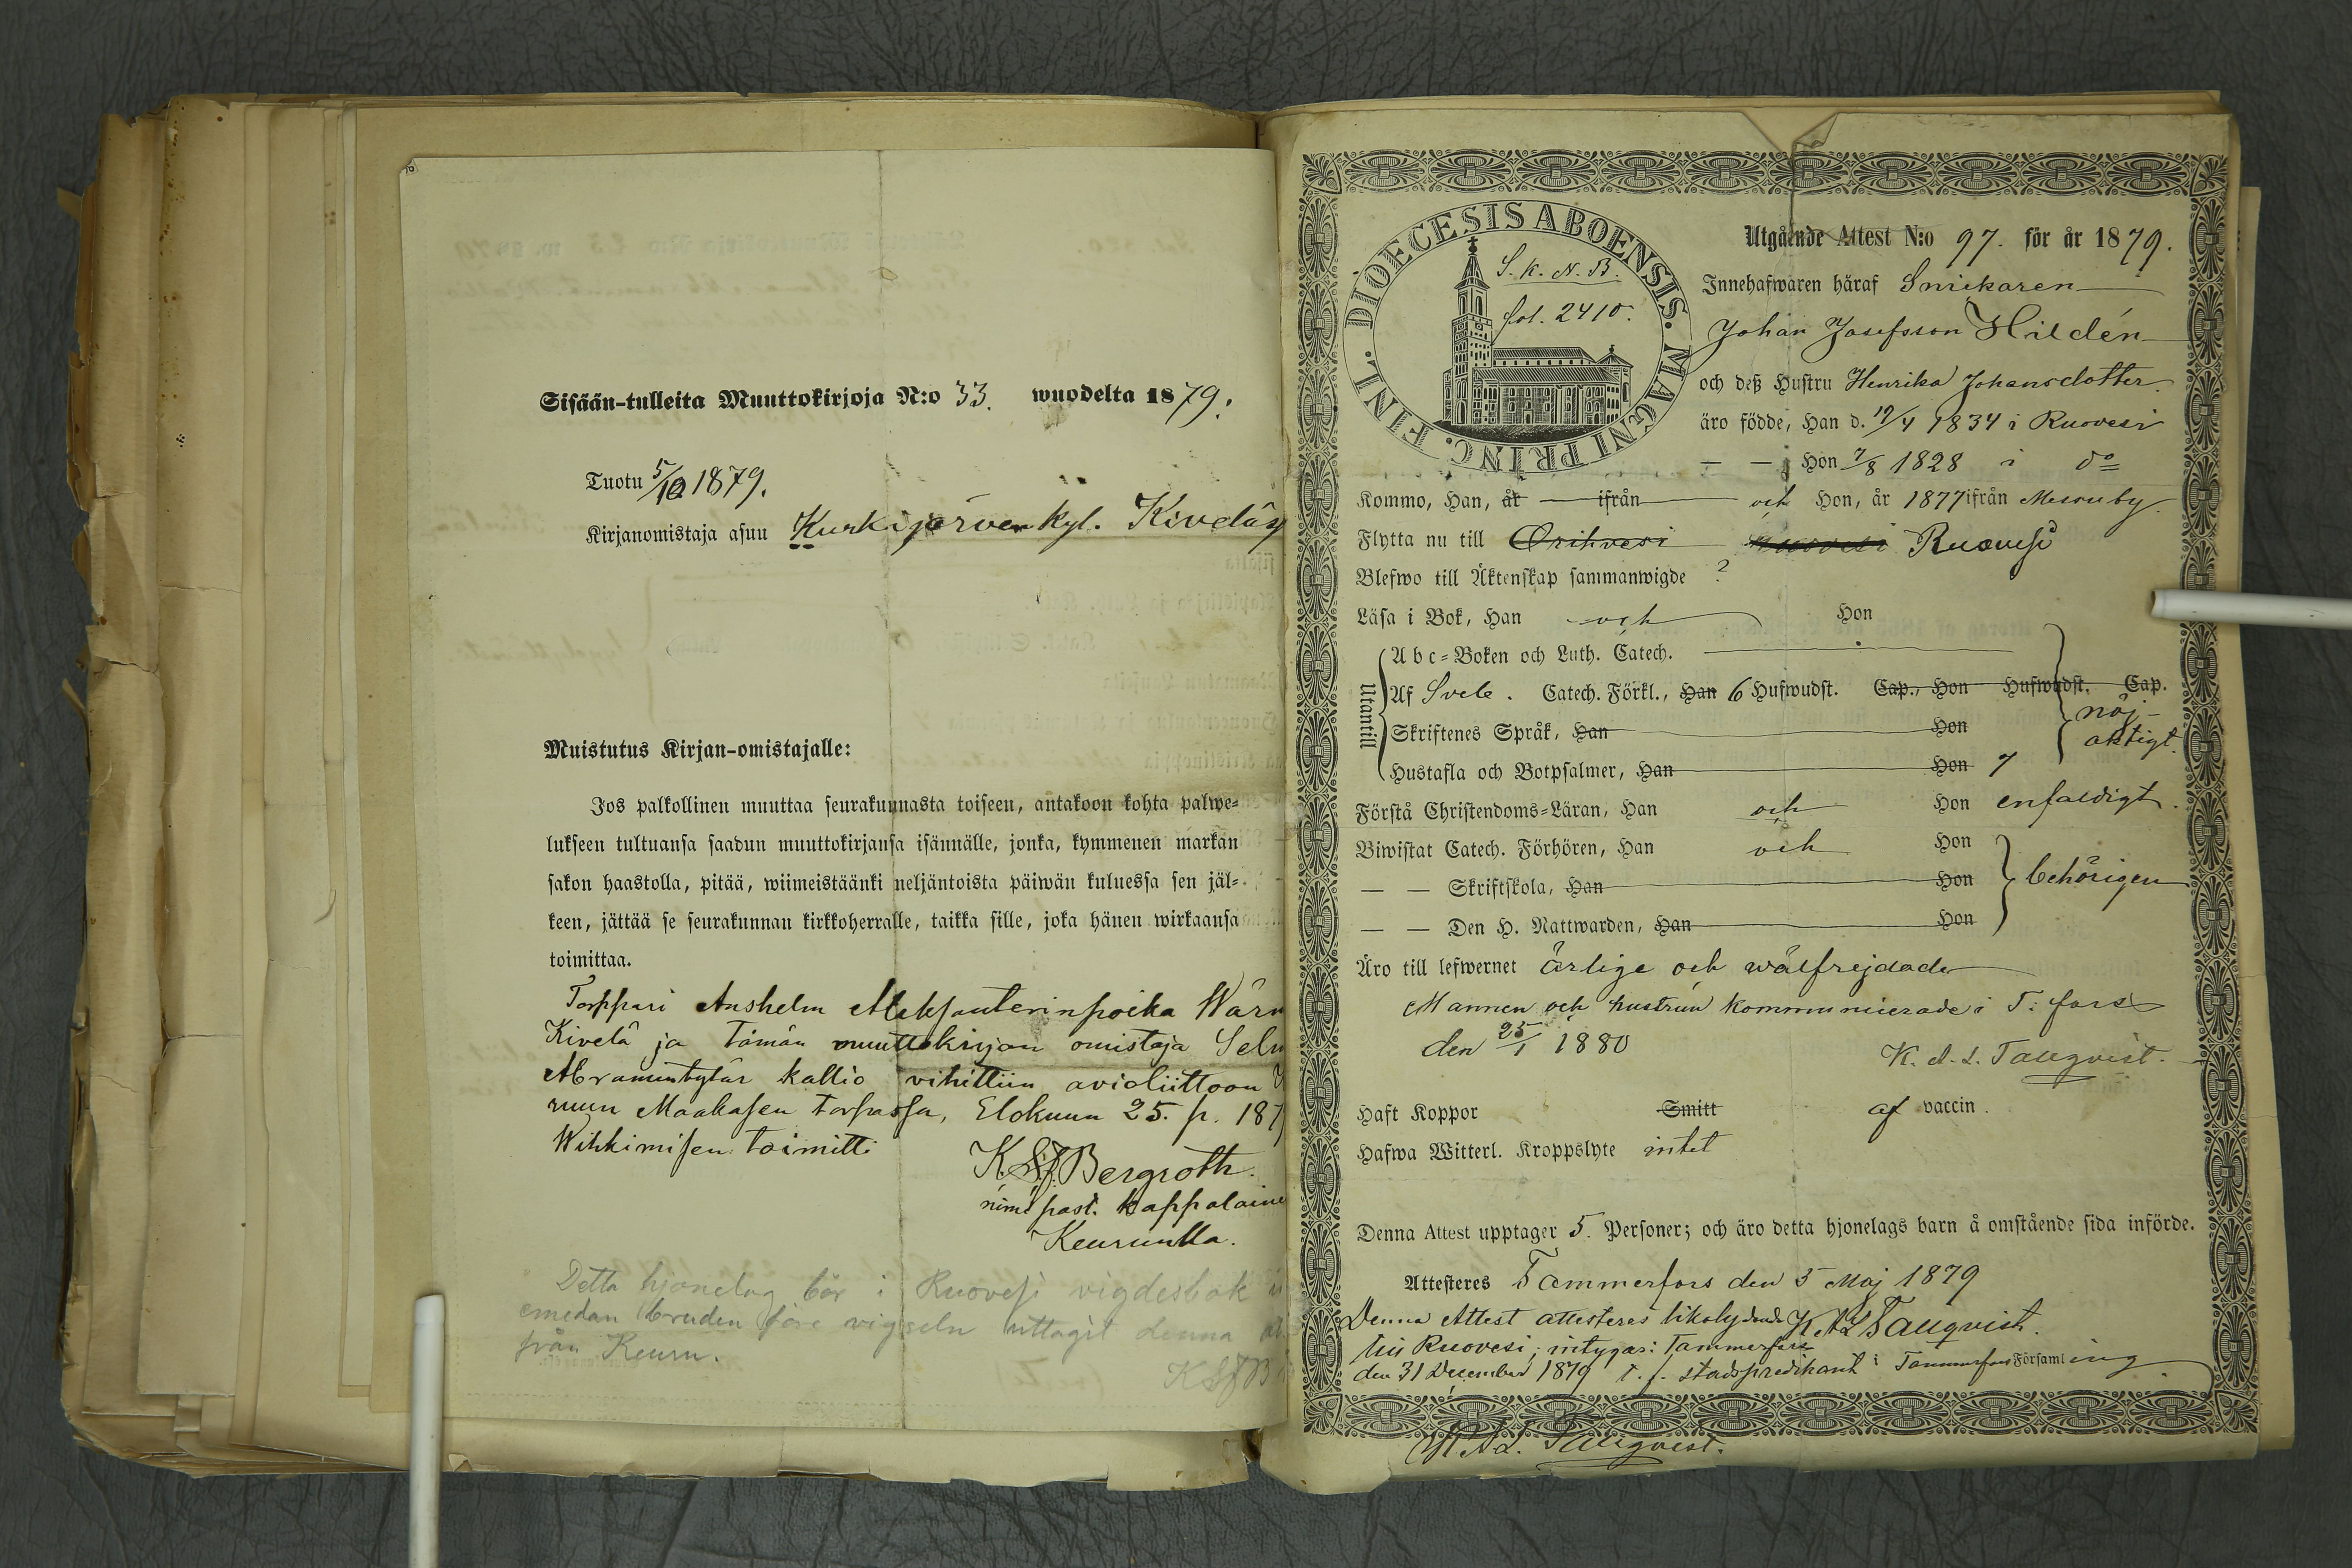 Sisään-tulleita Muuttokirjoja N:o 33. wuodelta 1879.
Tuotu 5/10 1879.
Kirjanomistaja asuu Kurkijärven kyl. Kiveläs
Muistutus Kirjan-omistajalle:
Jos palkollinen muuttaa seurakunnasta toiseen, antakoon kohta palwe=
lukseen tultuansa saadun muuttokirjansa isännälle, jonka, kymmenen markan
sakon haastolla, pitää, wiimeistäänki neljäntoista päiwän kuluessa sen jäl=
keen, jättää se seurakunnan kirkkoherralle, taikka sille, joka hänen wirkaansa
toimittaa.
Torppari Anshelm Aleksanterinpoika Wärn
Kivelä ja tämän muuttokirjan omistaja Selm
Abramintytär Kallio vihittiin avioliittoon
ruun Maakasen torpassa, Elokuun 25. p. 187
Wihkimisen toimitti
K. S. J. Bergroth.
nimi past. kappalaine
Keuruulla.
Detta hjonelag bör i Ruovesi vigdesbok
emedan bruden före vigseln uttagit denna
från Keuru.
KSJB
DIOECESIS ABOENSIS. MAGNI PRINC. FINL.
S. K. N. B.
fol. 2410.
Utgående Attest N:o 97. för år 1879.
Innehafwaren häraf Snickaren
Johan Josefsson Hildén
och deß Hustru Henrika Johansdotter
äro födde, Han d. 19/4 1834 i Ruovesi
— — Hon 7/8 1828 i do
Kommo, Han, år ifrån och Hon, år 1877 ifrån Messuby
Flytta nu till Orihvesi Ruovesi Ruovesi
Blefwo till Äktenskap sammanwigde ?
Läsa i Bok, Han och Hon
Utantill
Abc=Boken och Luth. Catech.
Af Sveb. Catech. Förkl., Han 6 Hufwudst. Cap., Hon Hufwudst. Cap.
Skriftenes Språk, Han Hon
nöj-
aktigt.
Hustafla och Botpsalmer, Han Hon 7
Förstå Christendoms=Läran, Han och Hon enfaldigt.
Biwistat Catech. Förhören, Han och Hon
— — Skriftskola, Han Hon behörigen
— — Den H. Nattwarden, Han Hon
Äro till lefwernet ärlige och wälfrejdade
Mannen och hustrun kommunicerade i T:fors
den 25/1 1880
K. A. L. Tallqvist.
Haft Koppor Smitt af vaccin.
Hafwa Witterl. Kroppslyte intet
Denna Attest upptager 5. Personer; och äro detta hjonelags barn å omstående sida införde.
Attesteres Tammerfors den 5 Maj 1879
K A L Tallqvist.
Denna Attest attesteres likalydande
till Ruovesi, intygar: Tammerfors
den 31 December 1879 t. f. stadspredikant i Tammerfors Församling
K A L. Tallqvist.